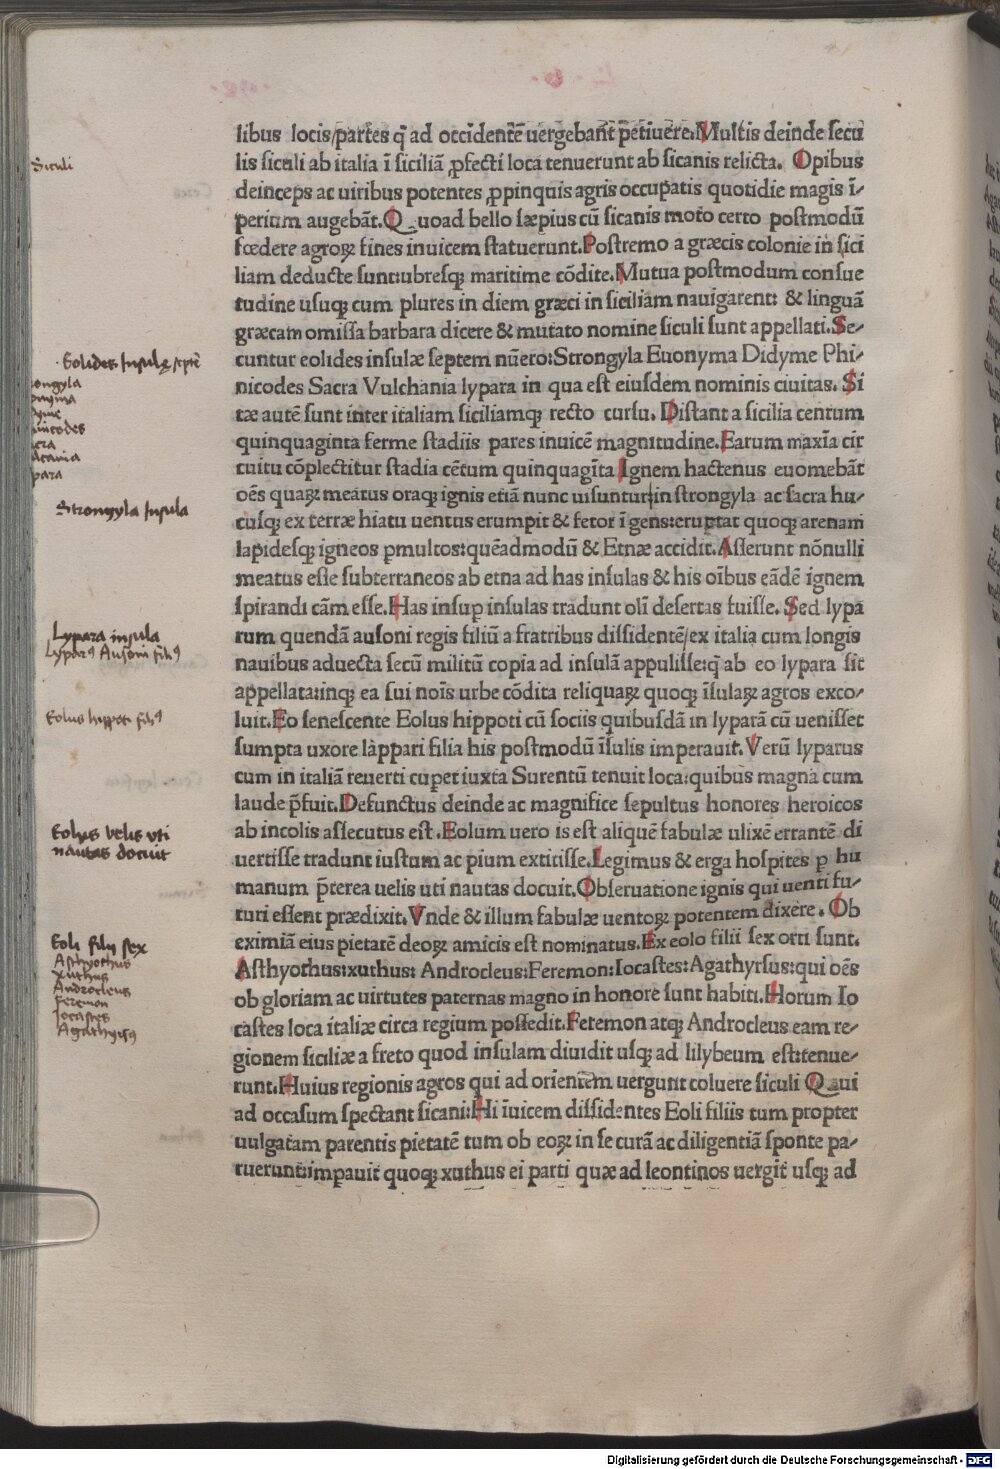 libus locis/partes q̃ ad occidentẽ uergebãt petiuere. Multis deinde secu
lis siculi ab italia ĩ siciliã ꝓfecti loca tenuerunt ab sicanis relicta. Opibus
deinceps ac uiribus potentes ꝓpinquis agris occupatis quotidie magis ĩ-
perium augebãt. Quoad bello sæpius cũ sicanis moto certo postmodũ
fœdere agroꝝ fines inuicem statuerunt. Postremo a græcis colonie in sici
liam deducte sunt:urbesqꝫ maritime cõdite. Mutua postmodum consue
tudine usuqꝫ cum plures in diem græci in siciliam nauigarent: & linguã
græcam omissa barbara dicere & mutato nomine siculi sunt appellati. Se-
cuntur eolides insulæ septem nũero: Strongyla Euonyma Didyme Phi-
nicodes Sacra Vulchania lypara in qua est eiusdem nominis ciuitas. Si
tæ autẽ sunt inter italiam siciliamqꝫ recto cursu. Distant a sicilia centum
quinquaginta ferme stadiis pares inuicẽ magnitudine. Earum maxĩa cir
cuitu cõplectitur stadia cẽtum quinquagĩta Ignem hactenus euomebãt
oẽs quaꝝ meatus oraqꝫ ignis etiã nunc uisuntur:in strongyla ac sacra hu-
cusqꝫ ex terræ hiatu uentus erumpit & fetor ĩgens:eruptat quoqꝫ arenam
lapidesqꝫ igneos pmultos:quẽadmodũ & Etnæ accidit. Asserunt nõnulli
meatus esse subterraneos ab etna ad has insulas & his oĩbus eãdẽ ignem
spirandi cãm esse. Has insup insulas tradunt olĩ desertas fuisse. Sed lypa
rum quendã ausoni regis filiũ a fratribus dissidentẽ/ex italia cum longis
nauibus aduecta secũ militũ copia ad insulã appulisse:q̃ ab eo lypara sit
appellata:inqꝫ ea sui noĩs urbe cõdita reliquaꝝ quoqꝫ ĩsulaꝝ agros exco-
luit. Eo senescente Eolus hippoti cũ sociis quibusdã in lyparã cũ uenisset
sumpta uxore lappari filia his postmodũ ĩsulis imperauit. Verũ lyparus
cum in italiã reuerti cuperet iuxta Surentũ tenuit loca:quibus magna cum
laude p̃fuit. Defunctus deinde ac magnifice sepultus honores heroicos
ab incolis assecutus est. Eolum uero is est aliquẽ fabulæ ulixẽ errantẽ di
uertisse tradunt iustum ac pium extitisse. Legimus & erga hospites ꝑ hu
manum p̃terea uelis uti nautas docuit. Obseruatione ignis qui uenti fu-
turi essent prædixit. Vnde & illum fabulæ uentoꝝ potentem dixere. Ob
eximiã eius pietatẽ deoꝝ amicis est nominatus. Ex eolo filii sex orti sunt.
Asthyothus:xuthus: Androcleus:Feremon:Iocastes:Agathyrsus:qui oẽs
ob gloriam ac uirtutes paternas magno in honore sunt habiti. Horum Io
castes loca italiæ circa regium possedit. Feremon atqꝫ Androcleus eam re-
gionem siciliæ a freto quod insulam diuidit usqꝫ ad lilybeum est:tenue-
runt. Huius regionis agros qui ad orientem uergunt coluere siculi Qui
ad occasum spectant sicani: Hi ĩuicem dissidentes Eoli filiis tum propter
uulgatam parentis pietatẽ tum ob eoꝝ in se curã ac diligentiã sponte pa-
ruerunt:impauit quoqꝫ xuthus ei parti quæ ad leontinos uergit usqꝫ ad
Siculi
Eolides Insulę septẽ
ongyla
onyma
yme
nicodes
cra
lcania
para
Strongyla Insula
Lypara insula
Lyparꝰ Ausoni filiꝰ
Eolus hippoti filꝰ
Eolus velis uti
nautas docuit
Eoli filij sex
Asthyothus
Xuthus
Androcleus
Feremon
Jocastes
Agathyrsꝰ
Digitalisierung gefördert durch die Deutsche Forschungsgemeinschaft - DFG